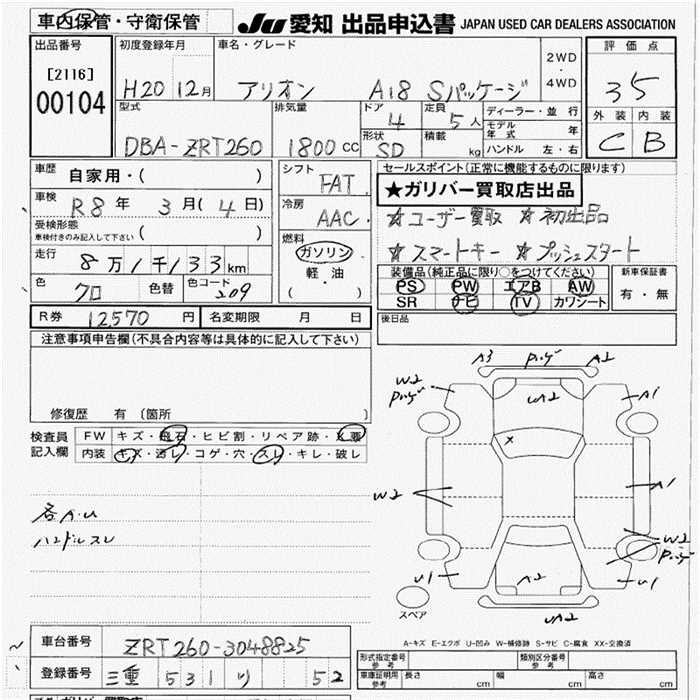 車内保管・守衛保管
JU 愛知 出品申込書 JAPAN USED CAR DEALERS ASSOCIATION
出品番号
[2116]
00104
初度登録年月
H20 12月
車名・グレード
アリオン A18 Sパッケージ
2WD
・
4WD
評価点
35
外装 内装
C B
型式
DBA-ZRT260
排気量
1800 CC
ドア
4
定員
5 人
形状
SD
積載
kg
ディーラー・並行
モデル年式 年
ハンドル 左・右
車歴
自家用・( )
車検
R8 年 3 月 ( 4 日)
受検形態
車検付きのみ記入して下さい ( )
走行
8 万 1 千 1 3 3 km
色
クロ
色替
色コード
209
シフト
FAT
冷房
AAC
燃料
ガソリン
・
軽・油
( )
セールスポイント(正常に機能するものに限ります)
★ガリバー買取店出品
☆ユーザー買取 ☆初出品
☆スマートキー ☆プッシュスタート
装備品(純正品に限り○をつけてください)
PS PW エアB AW
SR ナビ TV カワシート
新車保証書
有・無
R券 12570 円
名変期限 月 日
後日品
注意事項申告欄(不具合内容等は具体的に記入して下さい)
修復歴 有 〔箇所 〕
検査員記入欄
FW キズ・飛石・ヒビ割・リペア跡・X要
内装 キズ・汚レ・コゲ・穴・スレ・キレ・破レ
各A.U
ハンドルスレ
A3 A2
W2
UA2
A1
W2
A1
W2
U1
A2
U1
スペア
UA2
A-キズ E-エクボ U-凹み W-補修跡 S-サビ C-腐食 XX-交換済
車台番号
ZRT260-3048825
登録番号
三重 531 り 52
形式指定番号
参考
類別区分番号
参考
車庫証明用
参考
長さ cm
幅 cm
高さ cm